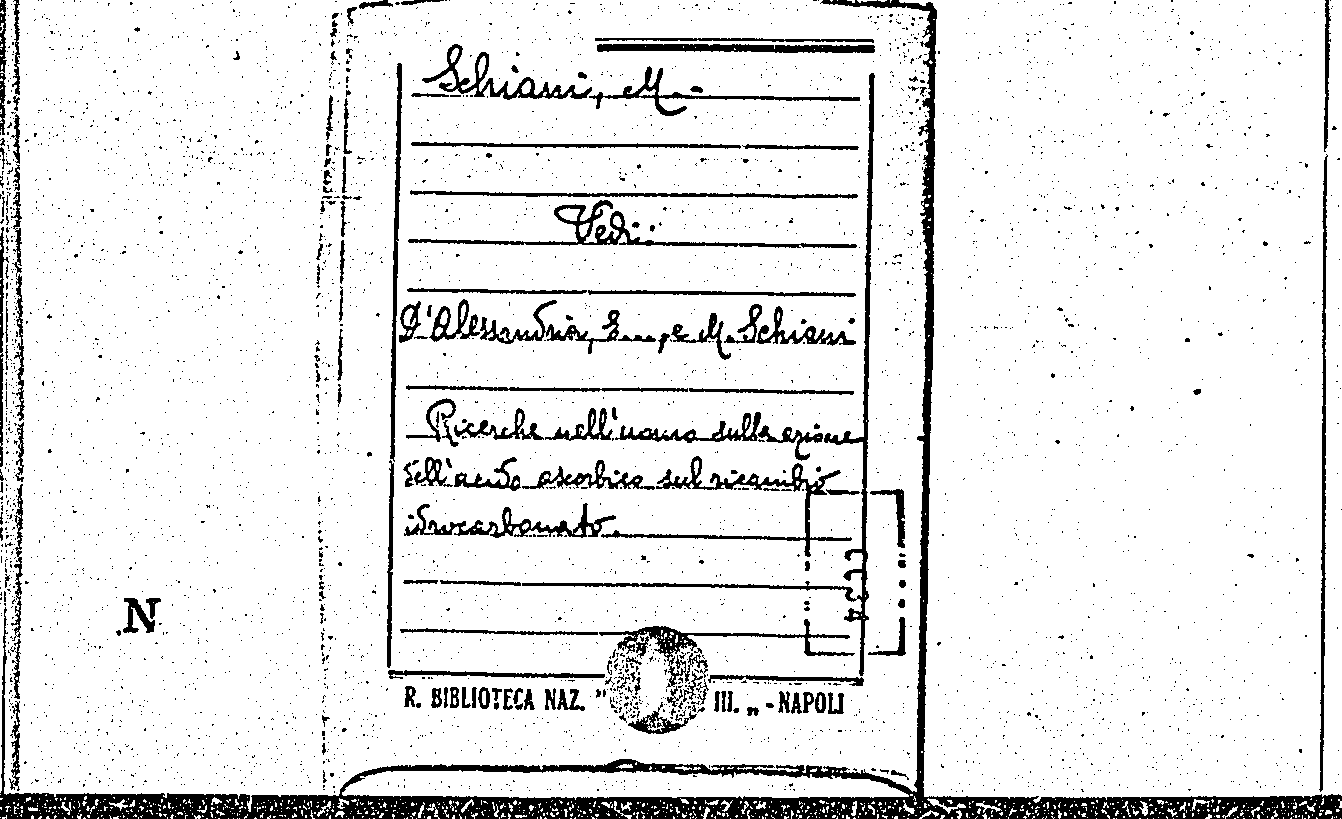 Schiani, M.-
Vedi:
D'Alessandria, E..., e M. Schiani
Ricerche nell'uomo sulla azione
dell'acido ascorbico sul ricambio
idrocarbonato.
N
R. BIBLIOTECA NAZ. " III. „ - NAPOLI